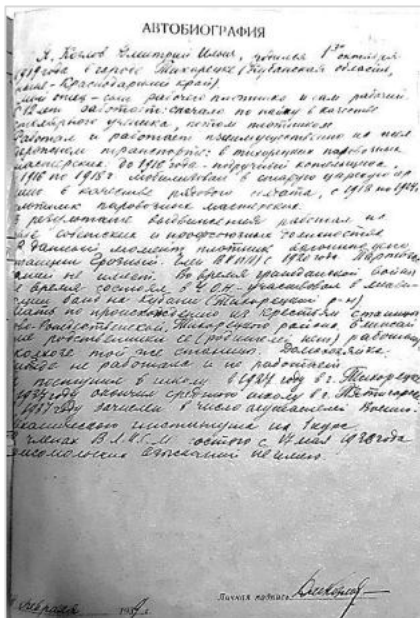 АВТОБИОГРАФИЯ
Я, Козлов Дмитрий Ильич, родился 1го октября
1919 года в городе Тихорецке (Кубанская область,
ныне - Краснодарский край).
мой отец - сын рабочего плотника и сам рабочий.
12 лет работать: сначала по найму в качестве
столярного ученика, потом плотником
Работал и работает преимущественно на
транспорте: в тихорецких паровозных
мастерских. До 1916 года -
1916 по 1918 г. мобилизован в старую царскую ар
в качестве рядового солдата, с 1918 по
плотник паровозных мастерских.
В результате выдвижения работал на
советских и профсоюзных должностях
В данный момент плотник вагонного
станции Грозный. Член ВКП(б) с 1920 года.
не имеет. Во время гражданской войны
время состоял в Ч.О.Н. - участвовал в
банд на Кубани (Тихорецкий р-н)
мать по происхождению из крестьян станицы
Рождественской, Тихорецкого района,
родственники ее (родителей нет) работают
колхозе той же станицы. Домохозяйка.
нигде не работала и не работает.
поступил в школу в 1927 году в г. Тихорецке
1937 году окончил среднюю школу в г. Пятигорске
1937 году зачислен в число слушателей Военно
механического института на 1 курс.
членах В.Л.К.С.М. состою с 17 мая 1938 года
комсомольских взысканий не имею.
февраля 193 г.
Личная подпись